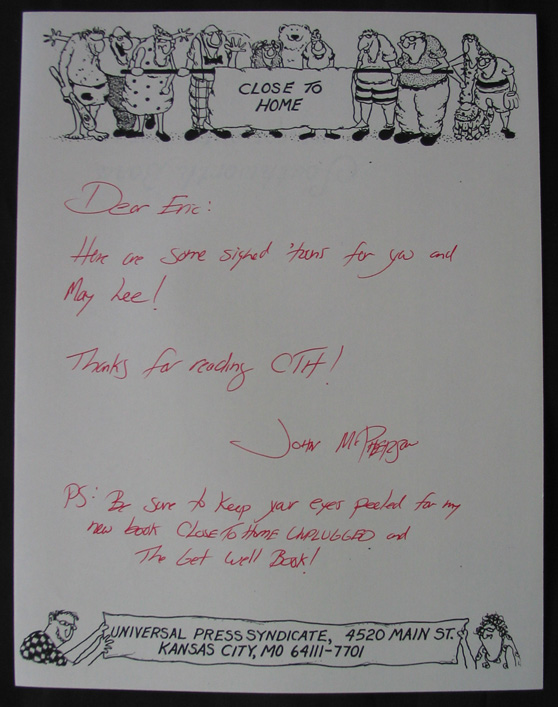 CLOSE TO
HOME
Dear Eric:
Here are some signed 'toons for you and
May Lee!
Thanks for reading CTH!
John McPherson
PS: Be sure to keep your eyes peeled for my
new book CLOSE TO HOME UNPLUGGED and
The Get Well Book!
UNIVERSAL PRESS SYNDICATE, 4520 MAIN ST.
KANSAS CITY, MO 64111-7701